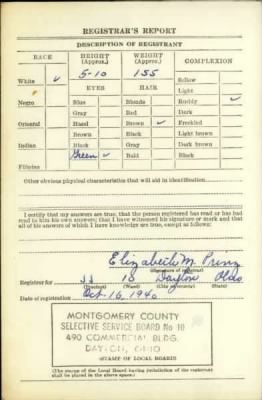 REGISTRAR'S REPORT
DESCRIPTION OF REGISTRANT
RACE HEIGHT (Approx.) WEIGHT (Approx.) COMPLEXION
White ✓ 5-10 155 Sallow
EYES HAIR Light
Negro Blue Blonde Ruddy ✓
Gray Red Dark
Oriental Hazel Brown ✓ Freckled
Brown Black Light brown
Indian Black Gray Dark brown
Green ✓ Bald Black
Filipino
Other obvious physical characteristics that will aid in identification
I certify that my answers are true; that the person registered has read or has had
read to him his own answers; that I have witnessed his signature or mark and that
all of his answers of which I have knowledge are true, except as follows:
Elizabeth M. Prinz
(Signature of registrar)
Registrar for JJ 10 Dayton Ohio
(Precinct) (Ward) (City or county) (State)
Date of registration Oct 16, 1940
MONTGOMERY COUNTY
SELECTIVE SERVICE BOARD No 10
490 COMMERCIAL BLDG.
DAYTON, OHIO
(STAMP OF LOCAL BOARD)
(The stamp of the Local Board having jurisdiction of the registrant
shall be placed in the above space.)